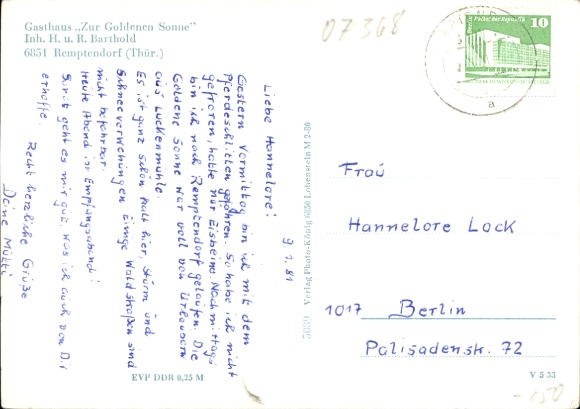 Gasthaus „Zur Goldenen Sonne"
Inh. H. u. R. Barthold
6851 Remptendorf (Thür.)
07368
Berlin, Palast der Republik 10
DDR
a
9.1.81
Liebe Hannelore!
Gestern Vormittag bin ich mit dem
Pferdeschlitten gefahren. So habe ich nicht
gefroren, hatte nur Eisbeine. Nachmittags
bin ich nach Remptendorf gelaufen. Die
Goldene Sonne war voll von Urlaubern
aus Lückenmühle.
Es ist ganz schön kalt hier, Sturm und
Schneeverwehungen. Einige Waldstraßen sind
nicht befahrbar.
Heute Abend ist Empfangsabend!
Sonst geht es mir gut, was ich auch von Dir
erhoffe.
Recht herzliche Grüße
Deine Mutti
5089 Verlag Photo-König 6850 Lobenstein M 2-80
Frau
Hannelore Lock
1017 Berlin
Palisadenstr. 72
EVP DDR 0,25 M
V 5 33
-150